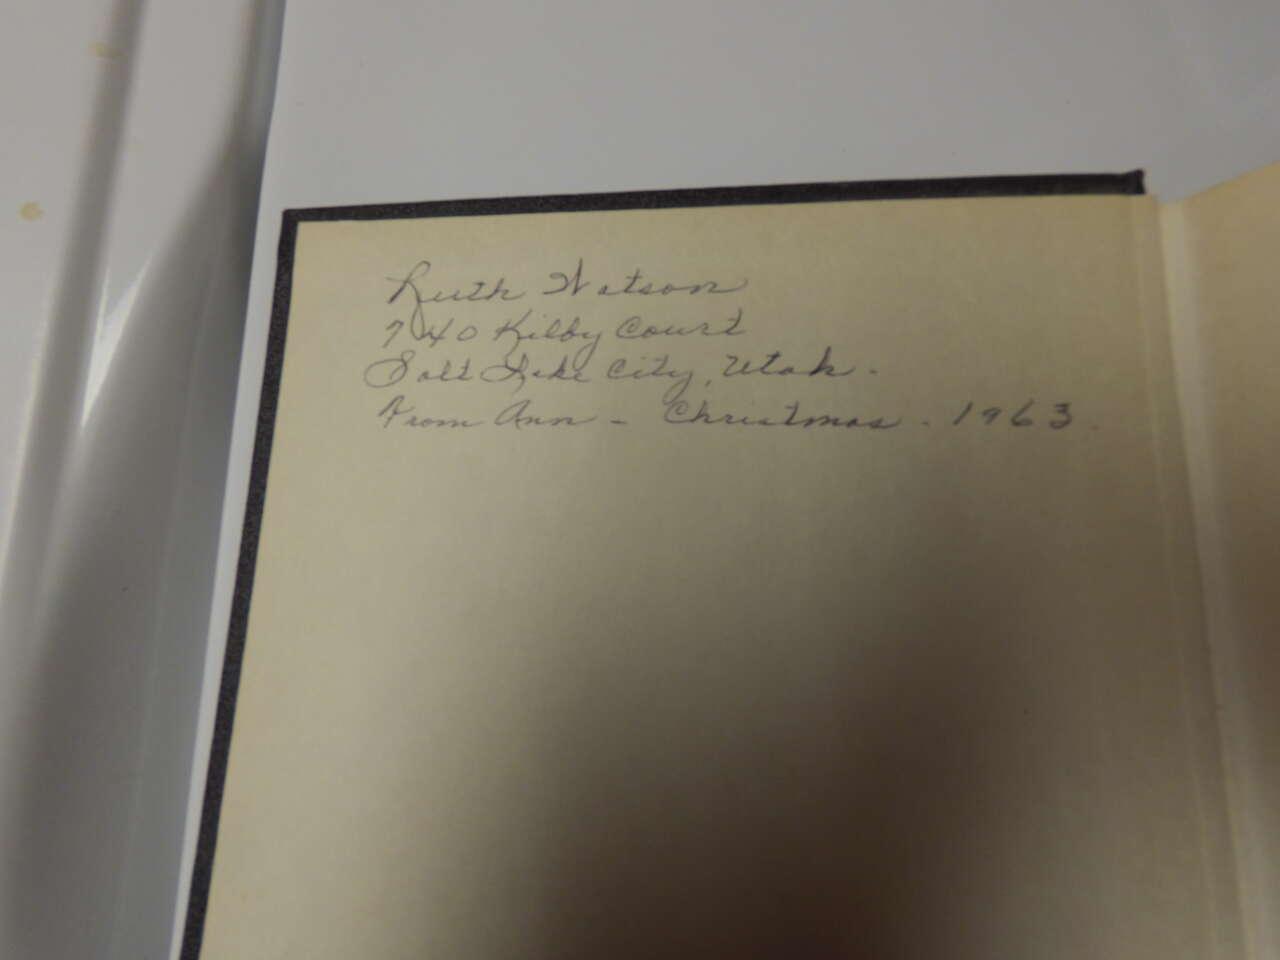 Ruth Watson
740 Kilby Court
Salt Lake City, Utah.
From Ann - Christmas - 1963.